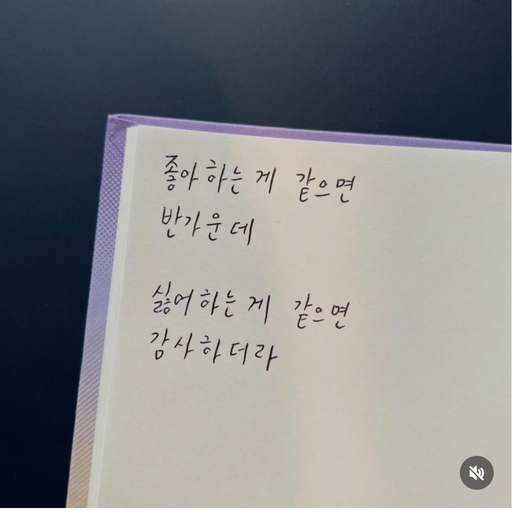 좋아하는 게 같으면
반가운데
싫어하는 게 같으면
감사하더라